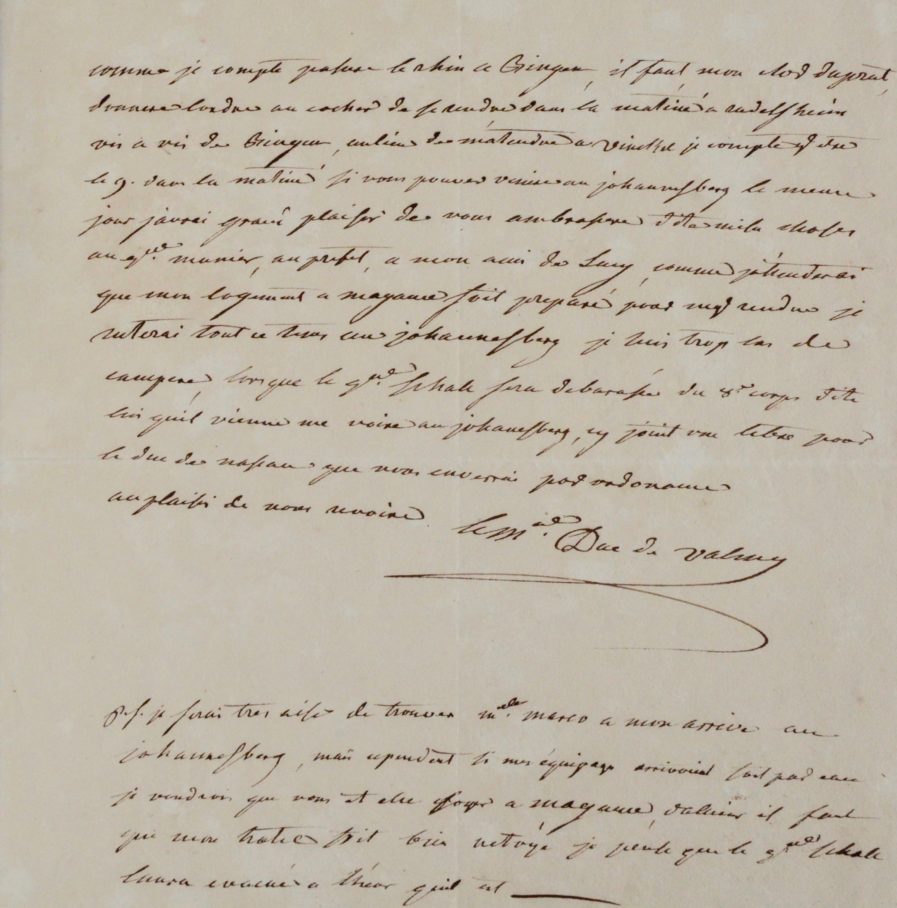 comme je compte passer le rhin a Bingen, il faut mon cher duprat,
donner lordre au cocher de se rendre dans la matiné a rudesheim
vis a vis de Bingen, aulieu de matendre a vinckel je compte y etre
le 9. dans la matiné si vous pouvez venire au johannesberg le meme
jour jaurai grand plaisir de vous ambrassere dite mille choses
au gnal munier, au prefet, a mon ami de Lucy, comme jattenderai
que mon logement a mayance soit preparé pour my rendre je
resterai tout ce tems au johannesberg je suis trop las de
campere, lorsque le gnal schall sera debarassé du 8e corps dite
lui quil vienne me voire au johannesberg, cy joint une lettre pour
le duc de nassau que vous enverrai par ordonance
au plaisir de vous revoire
le Mal Duc de Valmy
p.s. je serais tres aise de trouver melle marco a mon arrivé au
johannesberg, mais cependent si mes équipage arrivoient
je voudrois que vous et elle a mayance, dalieur il faut
que mon soit bien netoyé je pense que le gnal schall
laura evacué a quil est